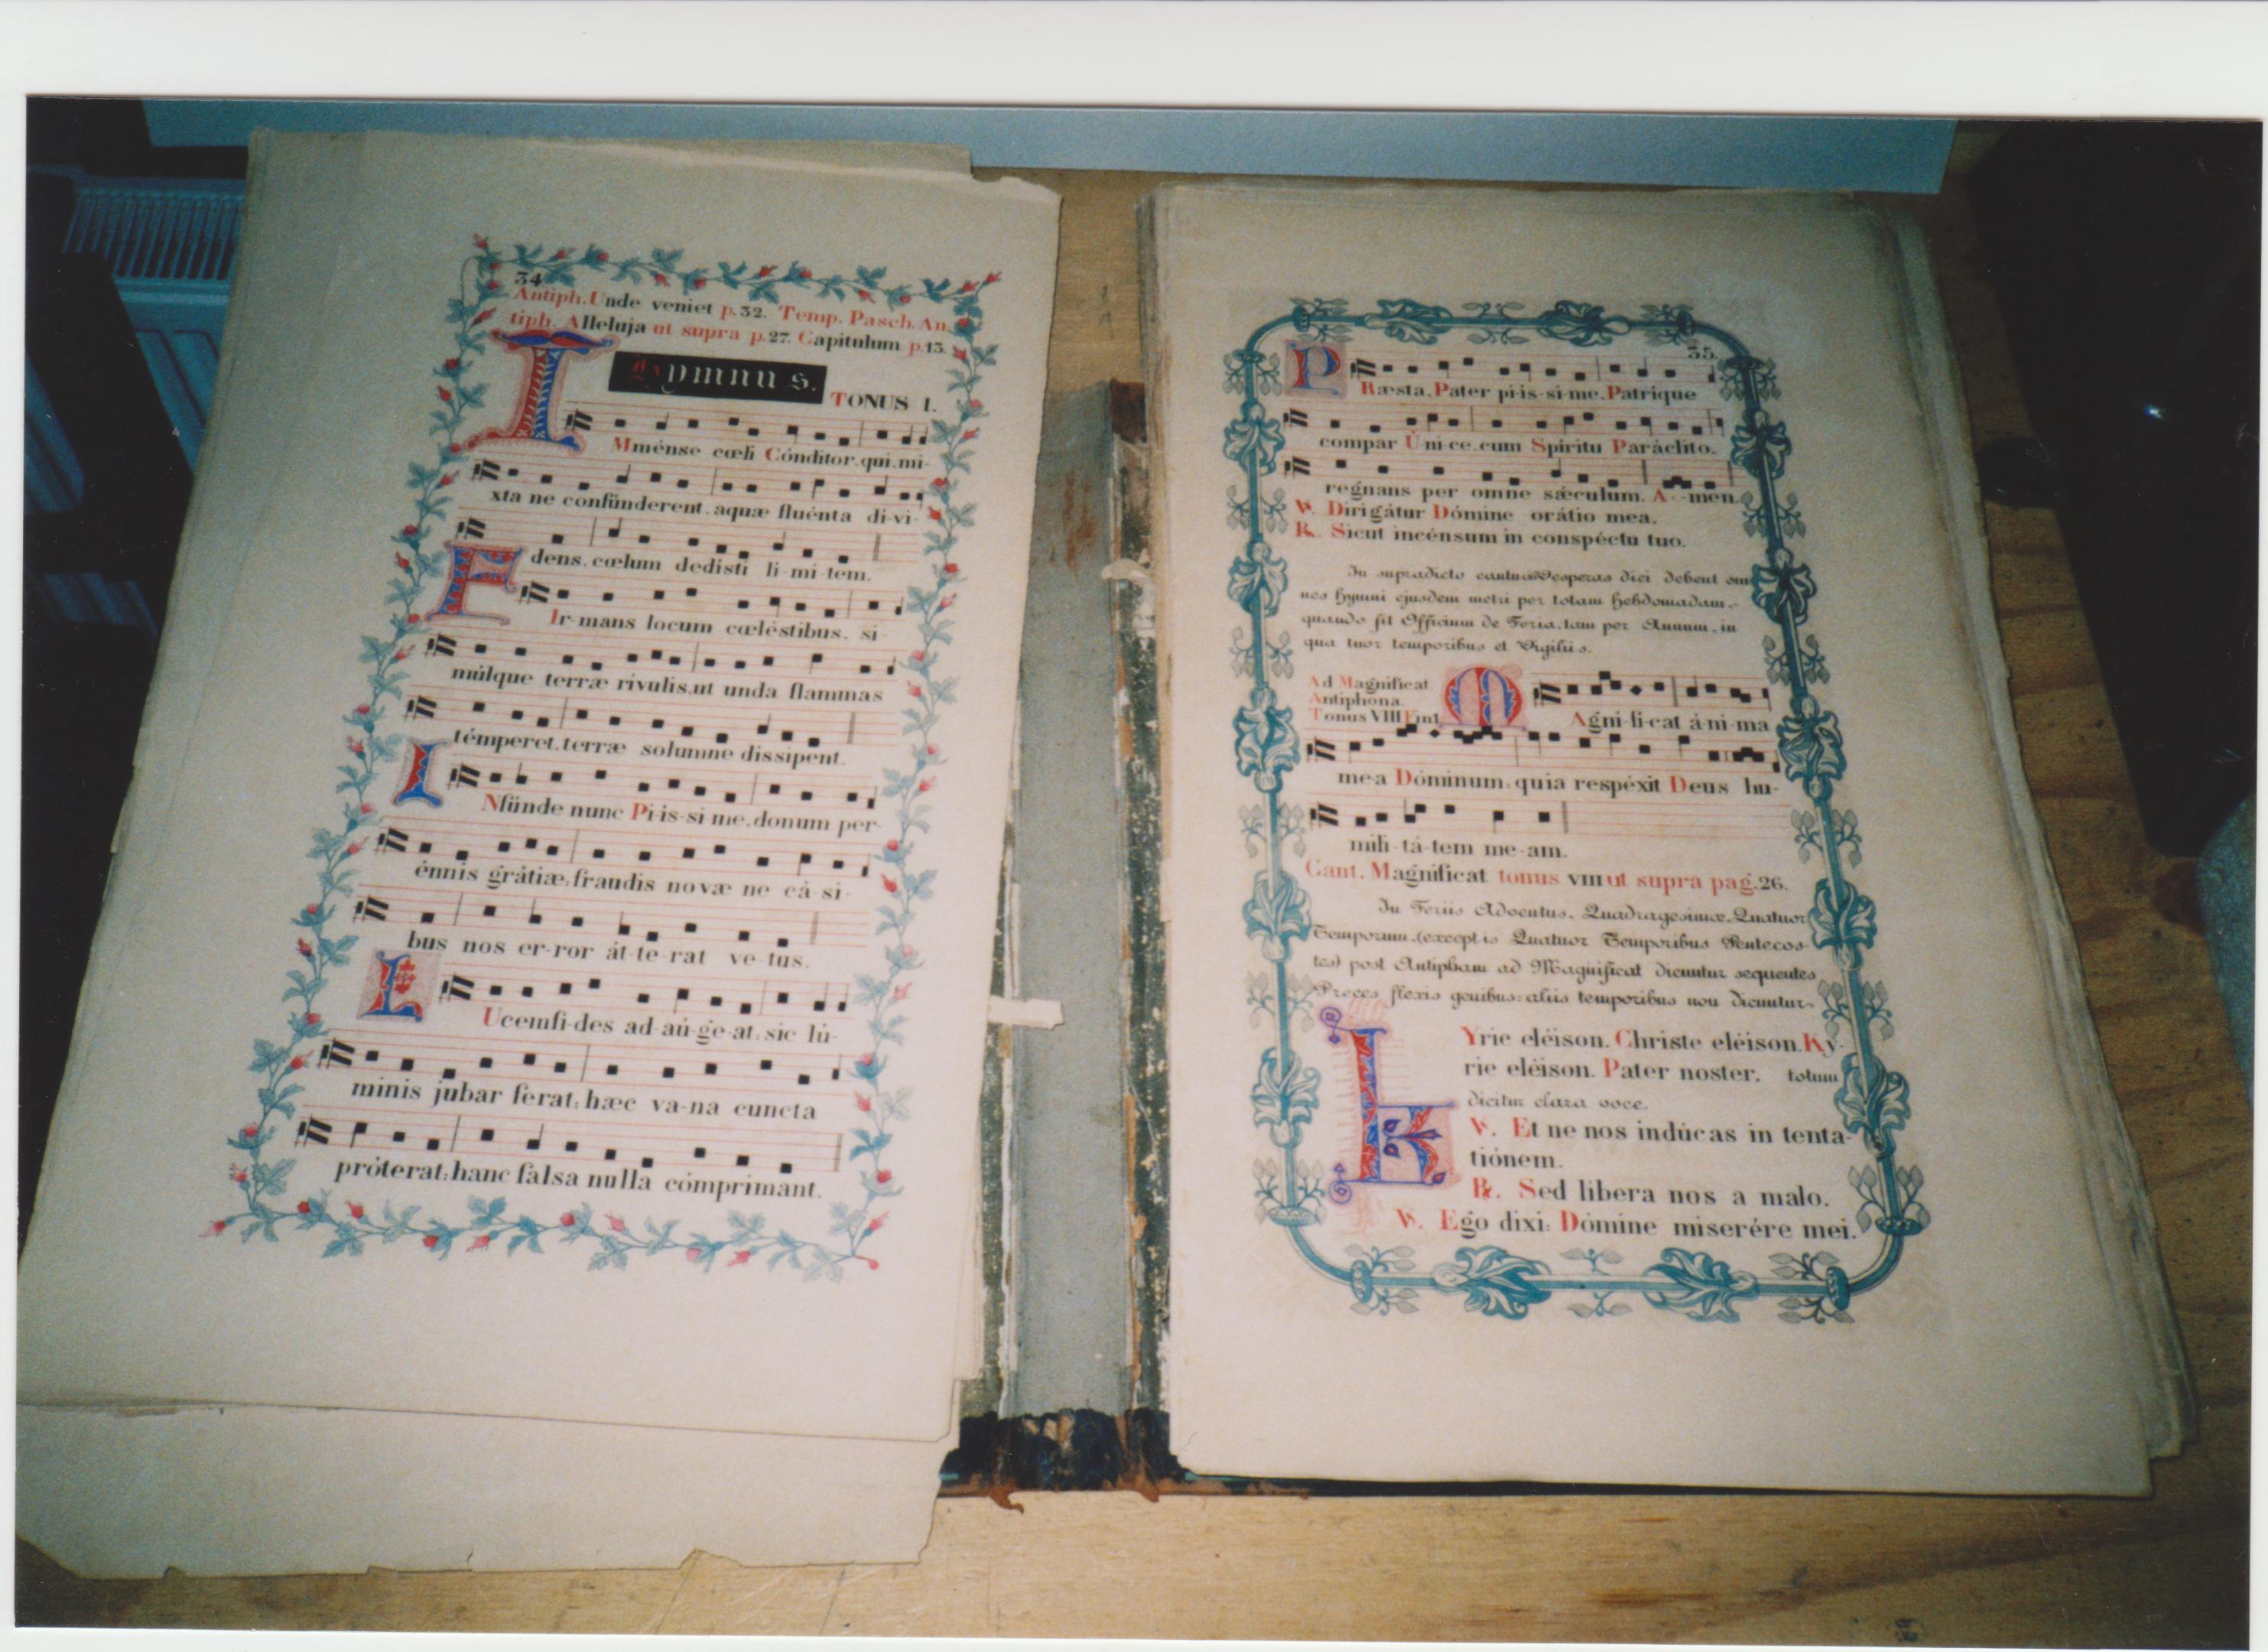 34
Antiph. Unde veniet p. 32. Temp. Pasch. An
tiph. Alleluja ut supra p. 27. Capitulum p. 13.
Hymnus.
TONUS I.
IMménse cœli Cónditor, qui mi-
xta ne confúnderent, aquæ fluénta di-vi-
dens, cœlum dedisti li-mi-tem.
FIr-mans locum cœléstibus, si-
múlque terræ rivulis, ut unda flammas
témperet, terræ solumne dissipent.
INfúnde nunc Pi-is-si-me, donum per-
énnis grátiæ: fraudis novæ ne cá-si-
bus nos er-ror át-te-rat ve-tus.
LUcemfi-des ad-aú-ge-at: sic lú-
minis jubar ferat: hæc va-na cuncta
próterat: hanc falsa nulla cómprimant.
35.
PRæsta, Pater pi-is-si-me, Patrique
compar Úni-ce, cum Spiritu Paráclito.
regnans per omne sæculum. A--men.
℣. Dirigátur Dómine orátio mea.
℟. Sicut incénsum in conspéctu tuo.
In supradicto cantu ad Vesperas dici debent om
nes hymni ejusdem metri per totam hebdomadam,
quando fit Officium de Feria, tam per Annum, in
qua tuor temporibus et Vigiliis.
Ad Magnificat
Antiphona.
Tonus VIII Fint.
MAgni-fi-cat á-ni-ma
me-a Dóminum, quia respéxit Deus hu-
mili-tá-tem me-am.
Cant. Magnificat tonus VIII ut supra pag. 26.
In Feriis Adventus, Quadragesimæ, Quatuor
Temporum, (exceptis Quatuor Temporibus Pentecos-
tes) post Antipham ad Magnificat dicuntur sequentes
Preces flexis genibus: aliis temporibus non dicuntur.
KYrie eléison. Christe eléison. Ky-
rie eléison. Pater noster. totum
dicitur clara voce.
℣. Et ne nos indúcas in tenta-
tiónem.
℟. Sed libera nos a malo.
℣. Ego dixi: Dómine miserére mei.